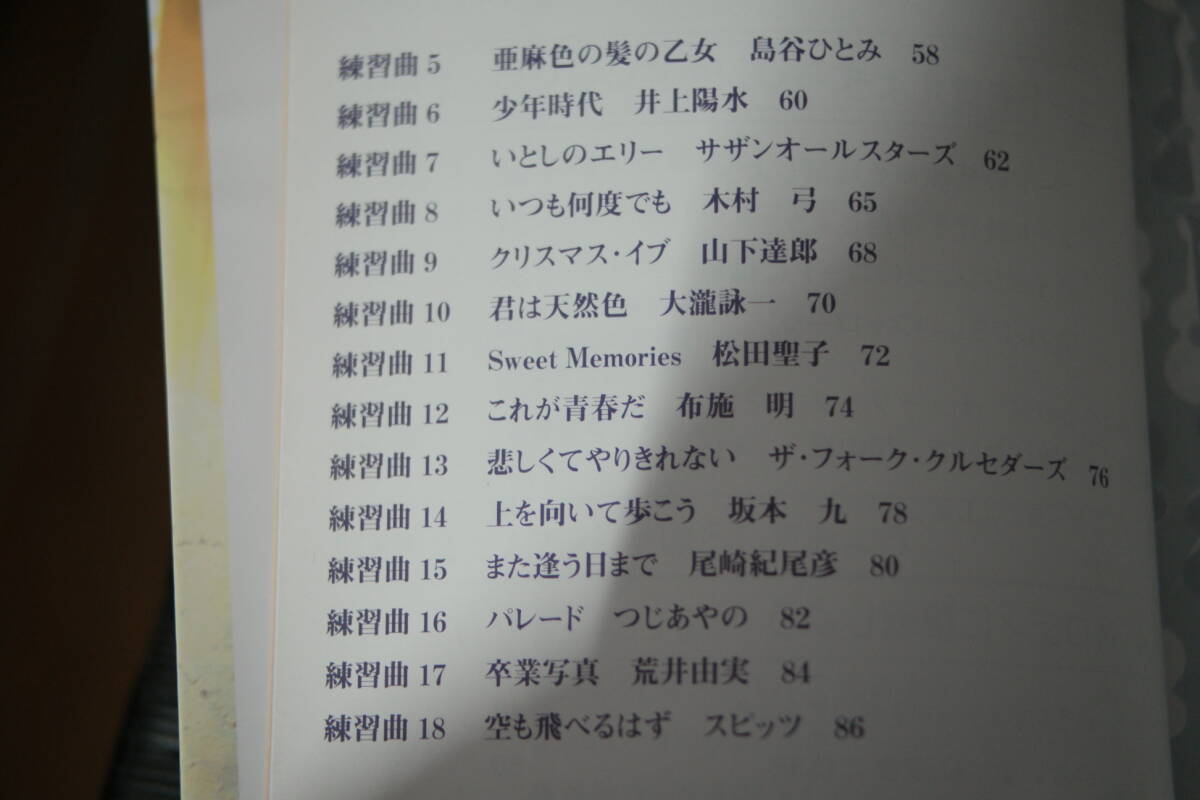 練習曲 5 亜麻色の髪の乙女 島谷ひとみ 58
練習曲 6 少年時代 井上陽水 60
練習曲 7 いとしのエリー サザンオールスターズ 62
練習曲 8 いつも何度でも 木村 弓 65
練習曲 9 クリスマス・イブ 山下達郎 68
練習曲 10 君は天然色 大瀧詠一 70
練習曲 11 Sweet Memories 松田聖子 72
練習曲 12 これが青春だ 布施 明 74
練習曲 13 悲しくてやりきれない ザ・フォーク・クルセダーズ 76
練習曲 14 上を向いて歩こう 坂本 九 78
練習曲 15 また逢う日まで 尾崎紀尾彦 80
練習曲 16 パレード つじあやの 82
練習曲 17 卒業写真 荒井由実 84
練習曲 18 空も飛べるはず スピッツ 86